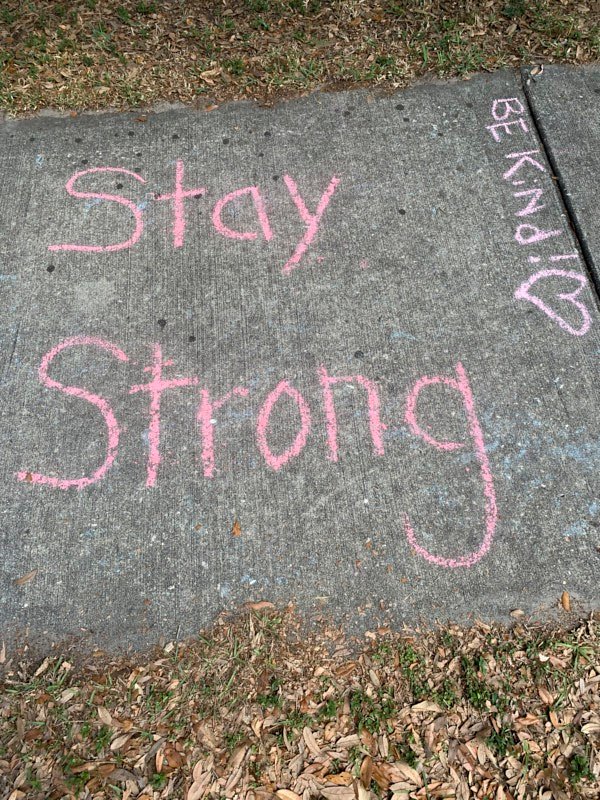 Stay
Strong
BE KiNd!!♡